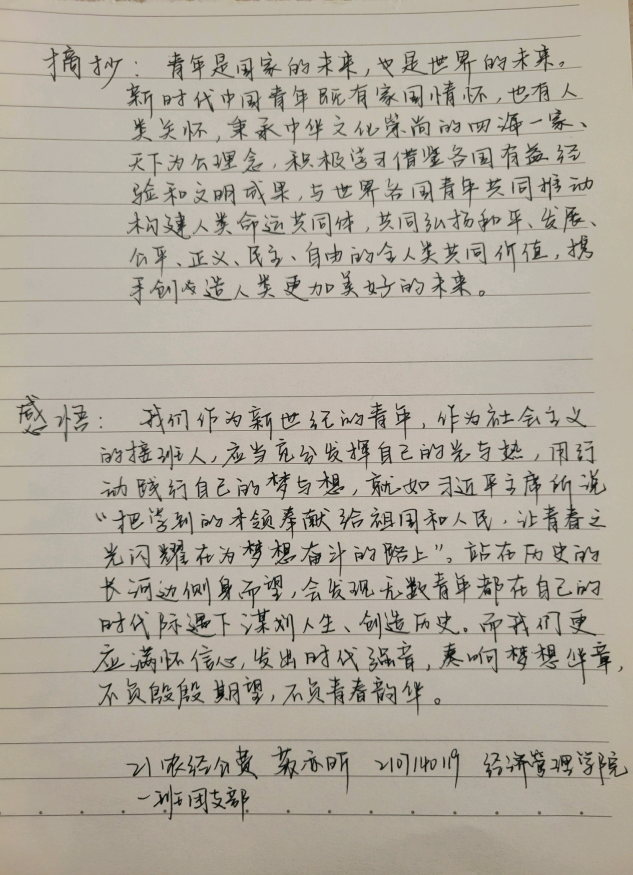 摘抄：青年是国家的未来，也是世界的未来。
新时代中国青年既有家国情怀，也有人
类关怀，秉承中华文化崇尚的四海一家、
天下为公理念，积极学习借鉴各国有益经
验和文明成果，与世界各国青年共同推动
构建人类命运共同体，共同弘扬和平、发展、
公平、正义、民主、自由的全人类共同价值，携
手创造人类更加美好的未来。
感悟：我们作为新世纪的青年，作为社会主义
的接班人，应当充分发挥自己的光与热，用行
动践行自己的梦与想，就如习近平主席所说
“把学到的本领奉献给祖国和人民，让青春之
光闪耀在为梦想奋斗的路上”。站在历史的
长河边侧身而望，会发现无数青年都在自己的
时代际遇下谋划人生、创造历史。而我们更
应满怀信心，发出时代强音，奏响梦想华章，
不负殷殷期望，不负青春韵华。
21农经公费 苏亦昕 21014019 经济管理学院
一班团支部